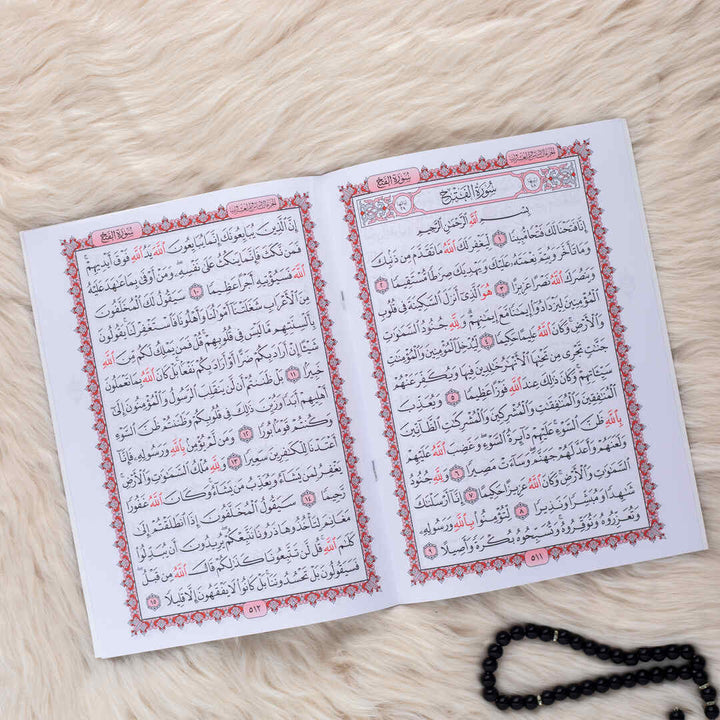 الجزء السادس والعشرون
سُورَةُ الفَتْحِ
سُورَةُ الفَتْحِ
بِسْمِ اللَّهِ الرَّحْمَٰنِ الرَّحِيمِ
إِنَّا فَتَحْنَا لَكَ فَتْحًا مُّبِينًا ١ لِّيَغْفِرَ لَكَ اللَّهُ مَا تَقَدَّمَ مِن ذَنبِكَ
وَمَا تَأَخَّرَ وَيُتِمَّ نِعْمَتَهُۥ عَلَيْكَ وَيَهْدِيَكَ صِرَٰطًا مُّسْتَقِيمًا ٢
وَيَنصُرَكَ اللَّهُ نَصْرًا عَزِيزًا ٣ هُوَ الَّذِي أَنزَلَ السَّكِينَةَ فِي قُلُوبِ
الْمُؤْمِنِينَ لِيَزْدَادُوا إِيمَٰنًا مَّعَ إِيمَٰنِهِمْ وَلِلَّهِ جُنُودُ السَّمَٰوَٰتِ
وَالْأَرْضِ وَكَانَ اللَّهُ عَلِيمًا حَكِيمًا ٤ لِّيُدْخِلَ الْمُؤْمِنِينَ وَالْمُؤْمِنَٰتِ
جَنَّٰتٍ تَجْرِي مِن تَحْتِهَا الْأَنْهَٰرُ خَٰلِدِينَ فِيهَا وَيُكَفِّرَ عَنْهُمْ
سَيِّـَٔاتِهِمْ وَكَانَ ذَٰلِكَ عِندَ اللَّهِ فَوْزًا عَظِيمًا ٥ وَيُعَذِّبَ
الْمُنَٰفِقِينَ وَالْمُنَٰفِقَٰتِ وَالْمُشْرِكِينَ وَالْمُشْرِكَٰتِ الظَّانِّينَ
بِاللَّهِ ظَنَّ السَّوْءِ عَلَيْهِمْ دَائِرَةُ السَّوْءِ وَغَضِبَ اللَّهُ عَلَيْهِمْ
وَلَعَنَهُمْ وَأَعَدَّ لَهُمْ جَهَنَّمَ وَسَاءَتْ مَصِيرًا ٦ وَلِلَّهِ جُنُودُ
السَّمَٰوَٰتِ وَالْأَرْضِ وَكَانَ اللَّهُ عَزِيزًا حَكِيمًا ٧ إِنَّا أَرْسَلْنَٰكَ
شَٰهِدًا وَمُبَشِّرًا وَنَذِيرًا ٨ لِّتُؤْمِنُوا بِاللَّهِ وَرَسُولِهِۦ
وَتُعَزِّرُوهُ وَتُوَقِّرُوهُ وَتُسَبِّحُوهُ بُكْرَةً وَأَصِيلًا ٩
٥١١
الجزء السادس والعشرون
سُورَةُ الفَتْحِ
إِنَّ الَّذِينَ يُبَايِعُونَكَ إِنَّمَا يُبَايِعُونَ اللَّهَ يَدُ اللَّهِ فَوْقَ أَيْدِيهِمْ
فَمَن نَّكَثَ فَإِنَّمَا يَنكُثُ عَلَىٰ نَفْسِهِۦ وَمَنْ أَوْفَىٰ بِمَا عَٰهَدَ عَلَيْهُ
اللَّهَ فَسَيُؤْتِيهِ أَجْرًا عَظِيمًا ١٠ سَيَقُولُ لَكَ الْمُخَلَّفُونَ
مِنَ الْأَعْرَابِ شَغَلَتْنَا أَمْوَٰلُنَا وَأَهْلُونَا فَاسْتَغْفِرْ لَنَا يَقُولُونَ
بِأَلْسِنَتِهِم مَّا لَيْسَ فِي قُلُوبِهِمْ قُلْ فَمَن يَمْلِكُ لَكُم مِّنَ اللَّهِ
شَيْـًٔا إِنْ أَرَادَ بِكُمْ ضَرًّا أَوْ أَرَادَ بِكُمْ نَفْعًا بَلْ كَانَ اللَّهُ بِمَا تَعْمَلُونَ
خَبِيرًا ١١ بَلْ ظَنَنتُمْ أَن لَّن يَنقَلِبَ الرَّسُولُ وَالْمُؤْمِنُونَ إِلَىٰ
أَهْلِيهِمْ أَبَدًا وَزُيِّنَ ذَٰلِكَ فِي قُلُوبِكُمْ وَظَنَنتُمْ ظَنَّ السَّوْءِ
وَكُنتُمْ قَوْمًا بُورًا ١٢ وَمَن لَّمْ يُؤْمِن بِاللَّهِ وَرَسُولِهِۦ فَإِنَّا
أَعْتَدْنَا لِلْكَٰفِرِينَ سَعِيرًا ١٣ وَلِلَّهِ مُلْكُ السَّمَٰوَٰتِ وَالْأَرْضِ
يَغْفِرُ لِمَن يَشَاءُ وَيُعَذِّبُ مَن يَشَاءُ وَكَانَ اللَّهُ غَفُورًا
رَّحِيمًا ١٤ سَيَقُولُ الْمُخَلَّفُونَ إِذَا انطَلَقْتُمْ إِلَىٰ
مَغَانِمَ لِتَأْخُذُوهَا ذَرُونَا نَتَّبِعْكُمْ يُرِيدُونَ أَن يُبَدِّلُوا
كَلَٰمَ اللَّهِ قُل لَّن تَتَّبِعُونَا كَذَٰلِكُمْ قَالَ اللَّهُ مِن قَبْلُ
فَسَيَقُولُونَ بَلْ تَحْسُدُونَنَا بَلْ كَانُوا لَا يَفْقَهُونَ إِلَّا قَلِيلًا ١٥
٥١٢